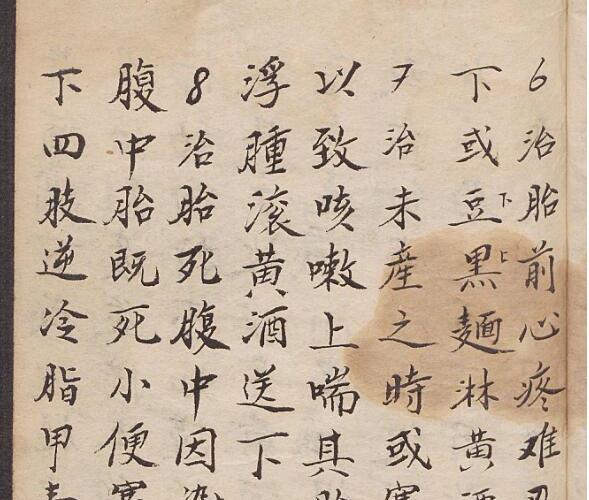 6治胎前心疼难
下或豆下黑上麵淋黄酒
7治未產之時或寒
以致咳嗽上喘其
浮腫滚黄酒送下
8治胎死腹中因染
腹中胎既死小便
下四肢逆冷脂甲